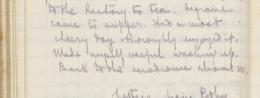 to the Rectory to tea. Signora
came to supper. Had a most
cheery day & thoroughly enjoyed it.
Made myself useful washing up.
Back to the madhouse about 10.
Letters